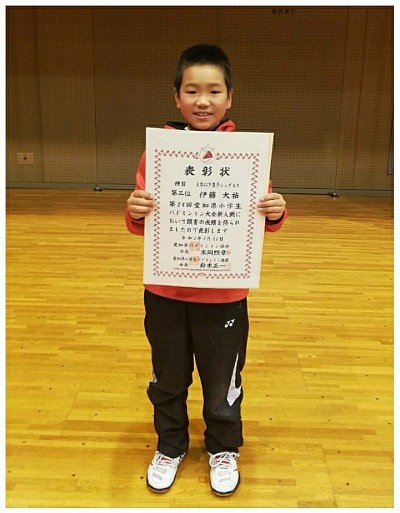 表彰状
種目
男子シングルス
第三位 伊藤 大祐
第24回愛知県小学生
バドミントン大会新人戦に
おいて頭書の成績を得られ
ましたので表彰します
愛知県バドミントン協会
会長
愛知県小学生バドミントン連盟
会長 鈴木正一
YONEX